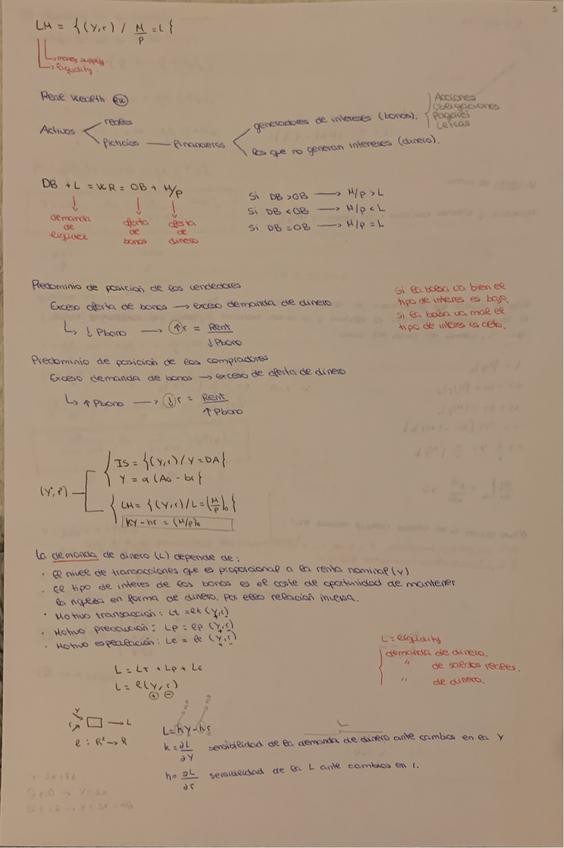 1
LM = {(Y,r) / M/P = L}
money supply
liquidity
Real Wealth
Activos
reales
ficticios — Financieros
generadores de intereses (bonos).
Acciones
Obligaciones
Pagarés
Letras
los que no generan intereses (dinero).
DB + L = WR = OB + M/P
demanda de liquidez
oferta de bonos
oferta de dinero
Si DB > OB → M/P > L
Si DB < OB → M/P < L
Si DB = OB → M/P = L
Predominio de posición de los vendedores
Exceso oferta de bonos → exceso demanda de dinero
↳ ↓ Pbono → ↑r = Rent / ↓Pbono
Si la bolsa va bien el
tipo de interés es bajo,
si la bolsa va mal el
tipo de interés es alto.
Predominio de posición de los compradores
Exceso demanda de bonos → exceso de oferta de dinero
↳ ↑ Pbono → ↓r = Rent / ↑ Pbono
(Y, r)
IS = {(Y,r) / Y = DA}
Y = α (A0 - br)
LM = {(Y,r) / L = (M/P)0}
kY - hr = (M/P)0
La demanda de dinero (L) depende de:
· El nivel de transacciones que es proporcional a la renta nominal (Y)
· El tipo de interés de los bonos es el coste de oportunidad de mantener
la riqueza en forma de dinero. Por ello relación inversa.
· Motivo transacción: Lt = lt (Y,r)
· Motivo precaución: Lp = lp (Y,r)
· Motivo especulación: Le = le (Y,r)
L = Lt + Lp + Le
L = l (Y,r)
+ −
L = liquidity
demanda de dinero.
" de saldos reales.
" de dinero.
Y
r
→ L
l : R² → R
L = kY - hr
k = ∂L/∂Y sensibilidad de la demanda de dinero ante cambios en la Y
h = ∂L/∂r sensibilidad de la L ante cambios en r.